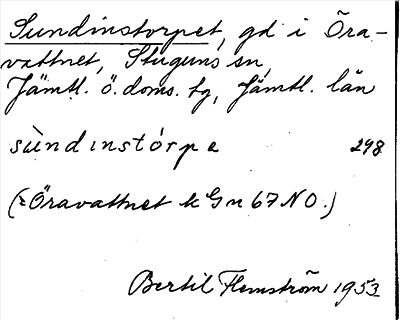 Sundinstorpet, gd i Öra-
vattnet, Stuguns sn,
Jämtl. ö. doms. tg, Jämtl. län
sùndınstórpe 298
(= Öravattnet k Gn 67 NO.)
Bertil Flemström 1953